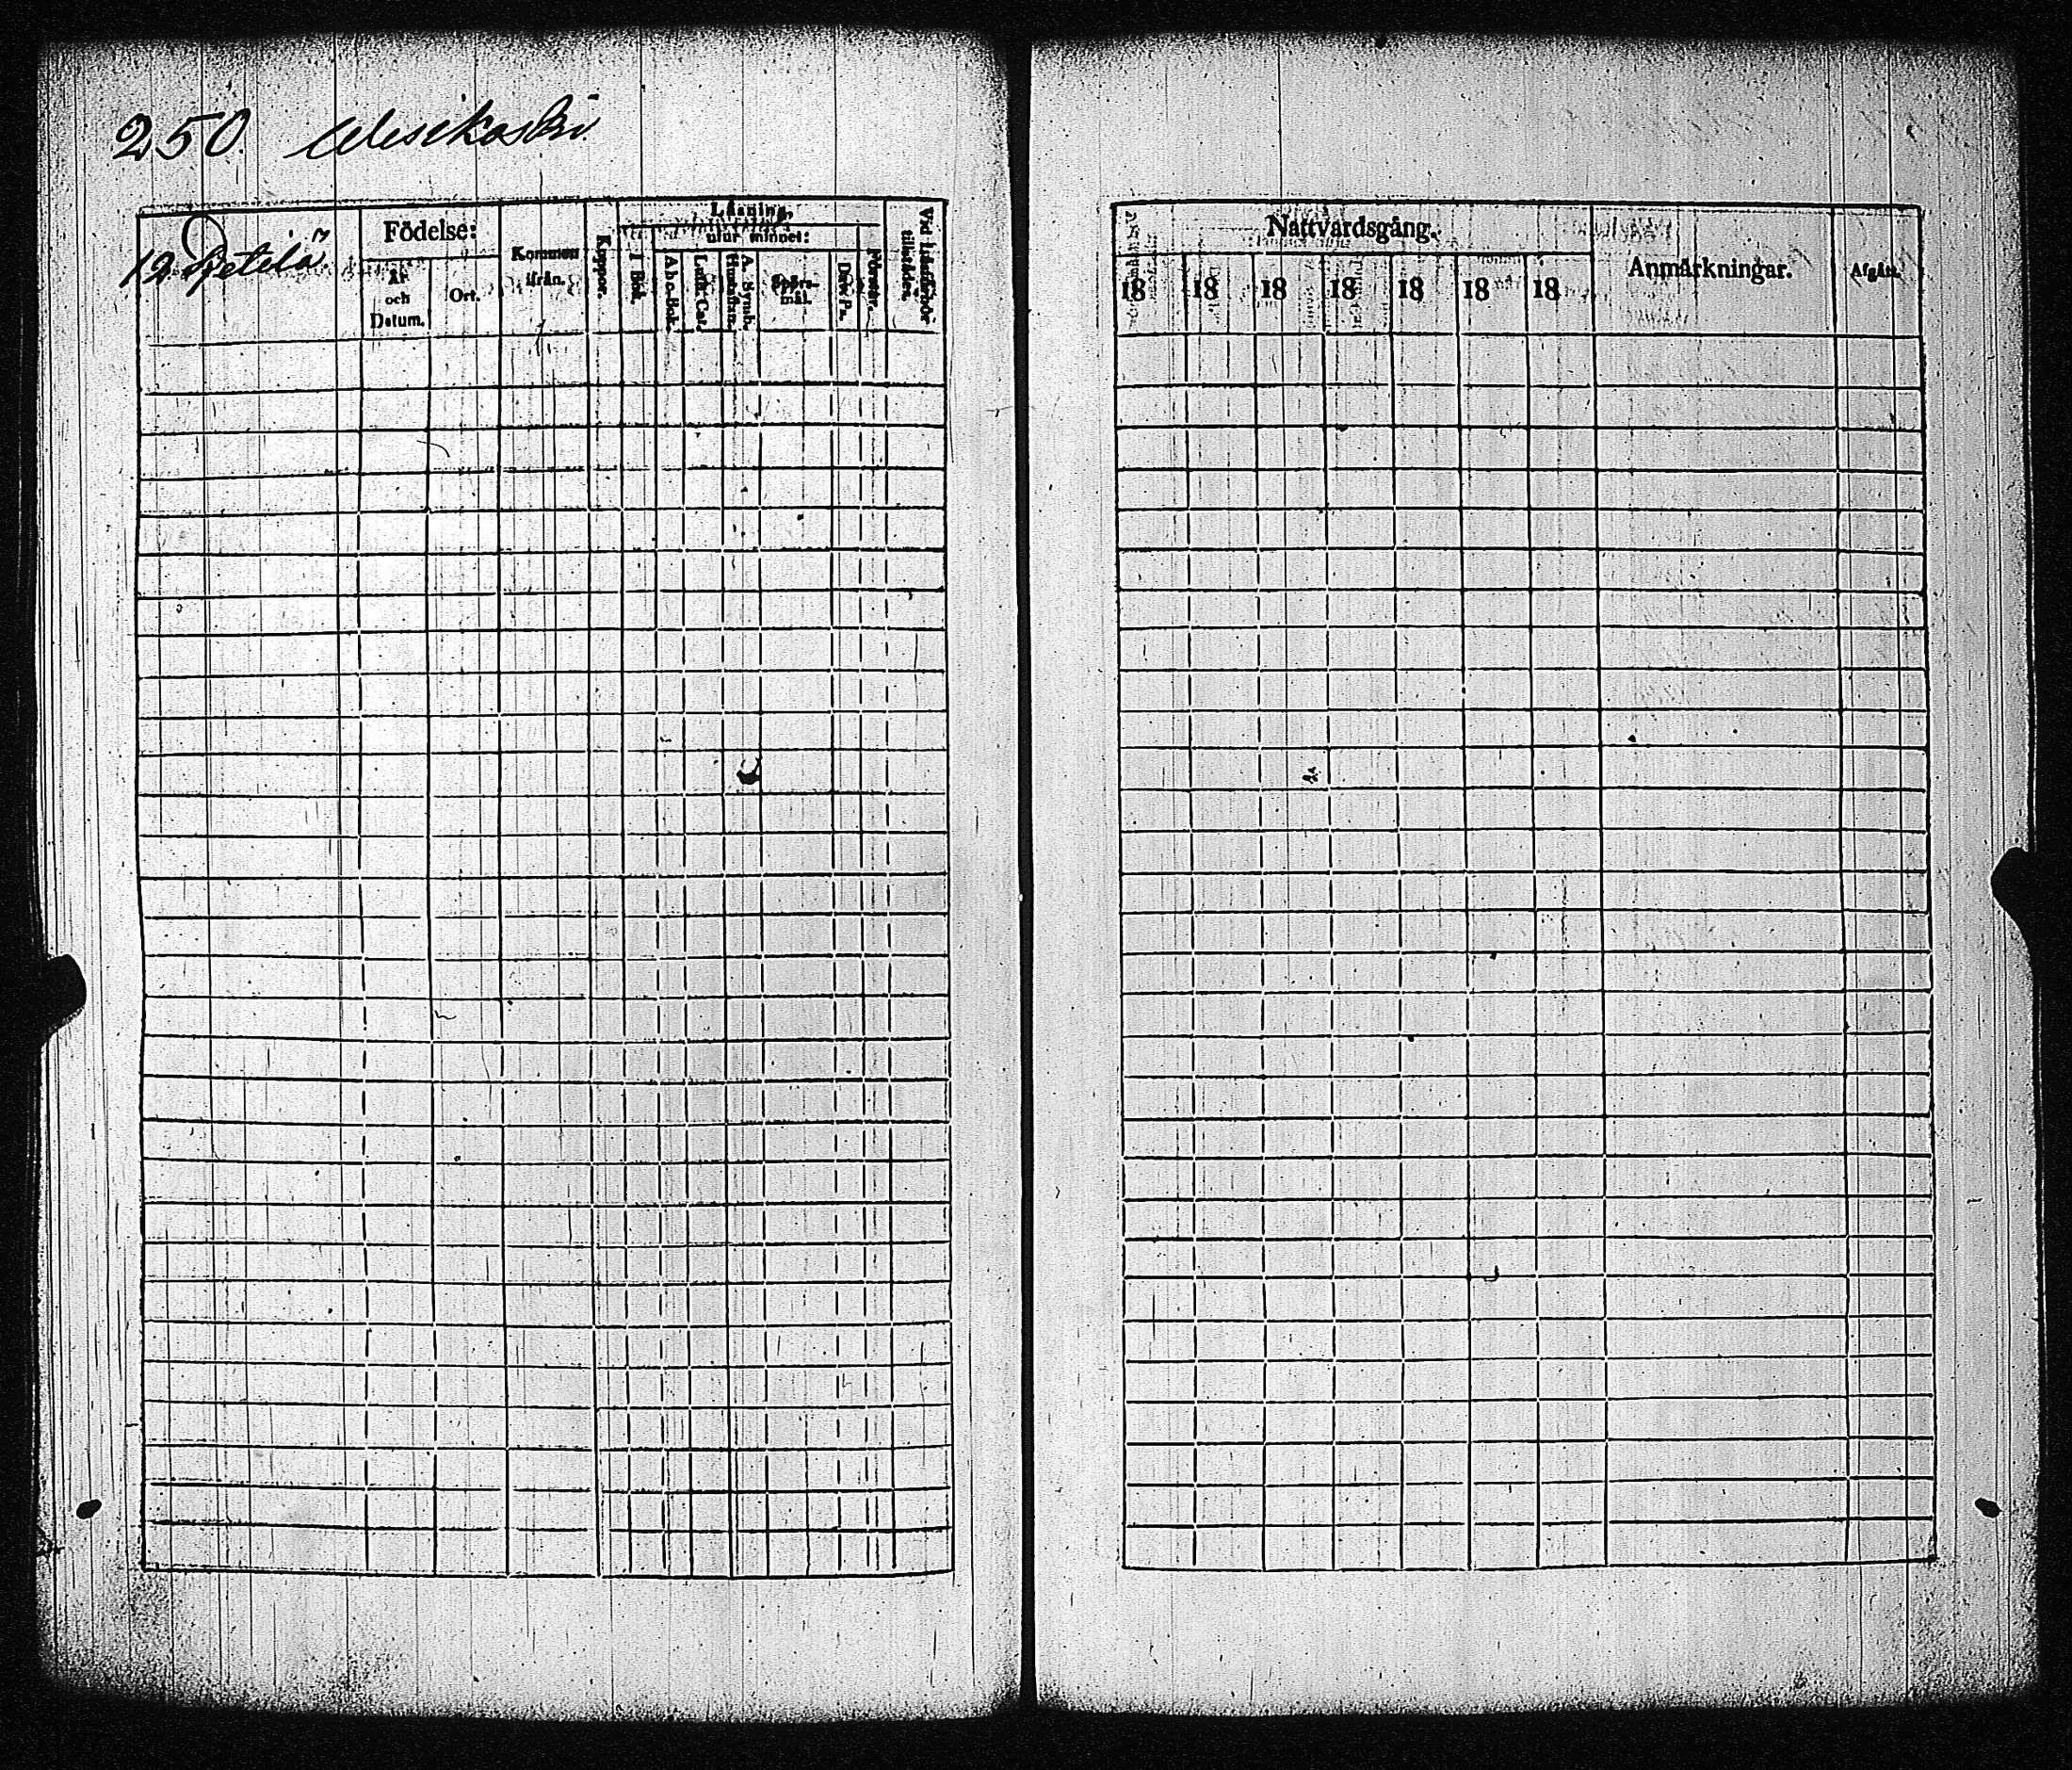 250. Alesikoski
12 Petilä
Födelse:
År
och
Datum.
Ort.
Kommen
ifrån.
Koppor.
Läsning,
I Bok.
utur minnet:
A b c-Bok.
Luth. Cat.
Hustaflan.
A. Symb.
Spörs-
mål.
Dav. Ps.
Förstår.
Vid Läsförhör
tillstädes.
Nattvardsgång.
18 18 18 18 18 18 18
Anmärkningar.
Afgått.